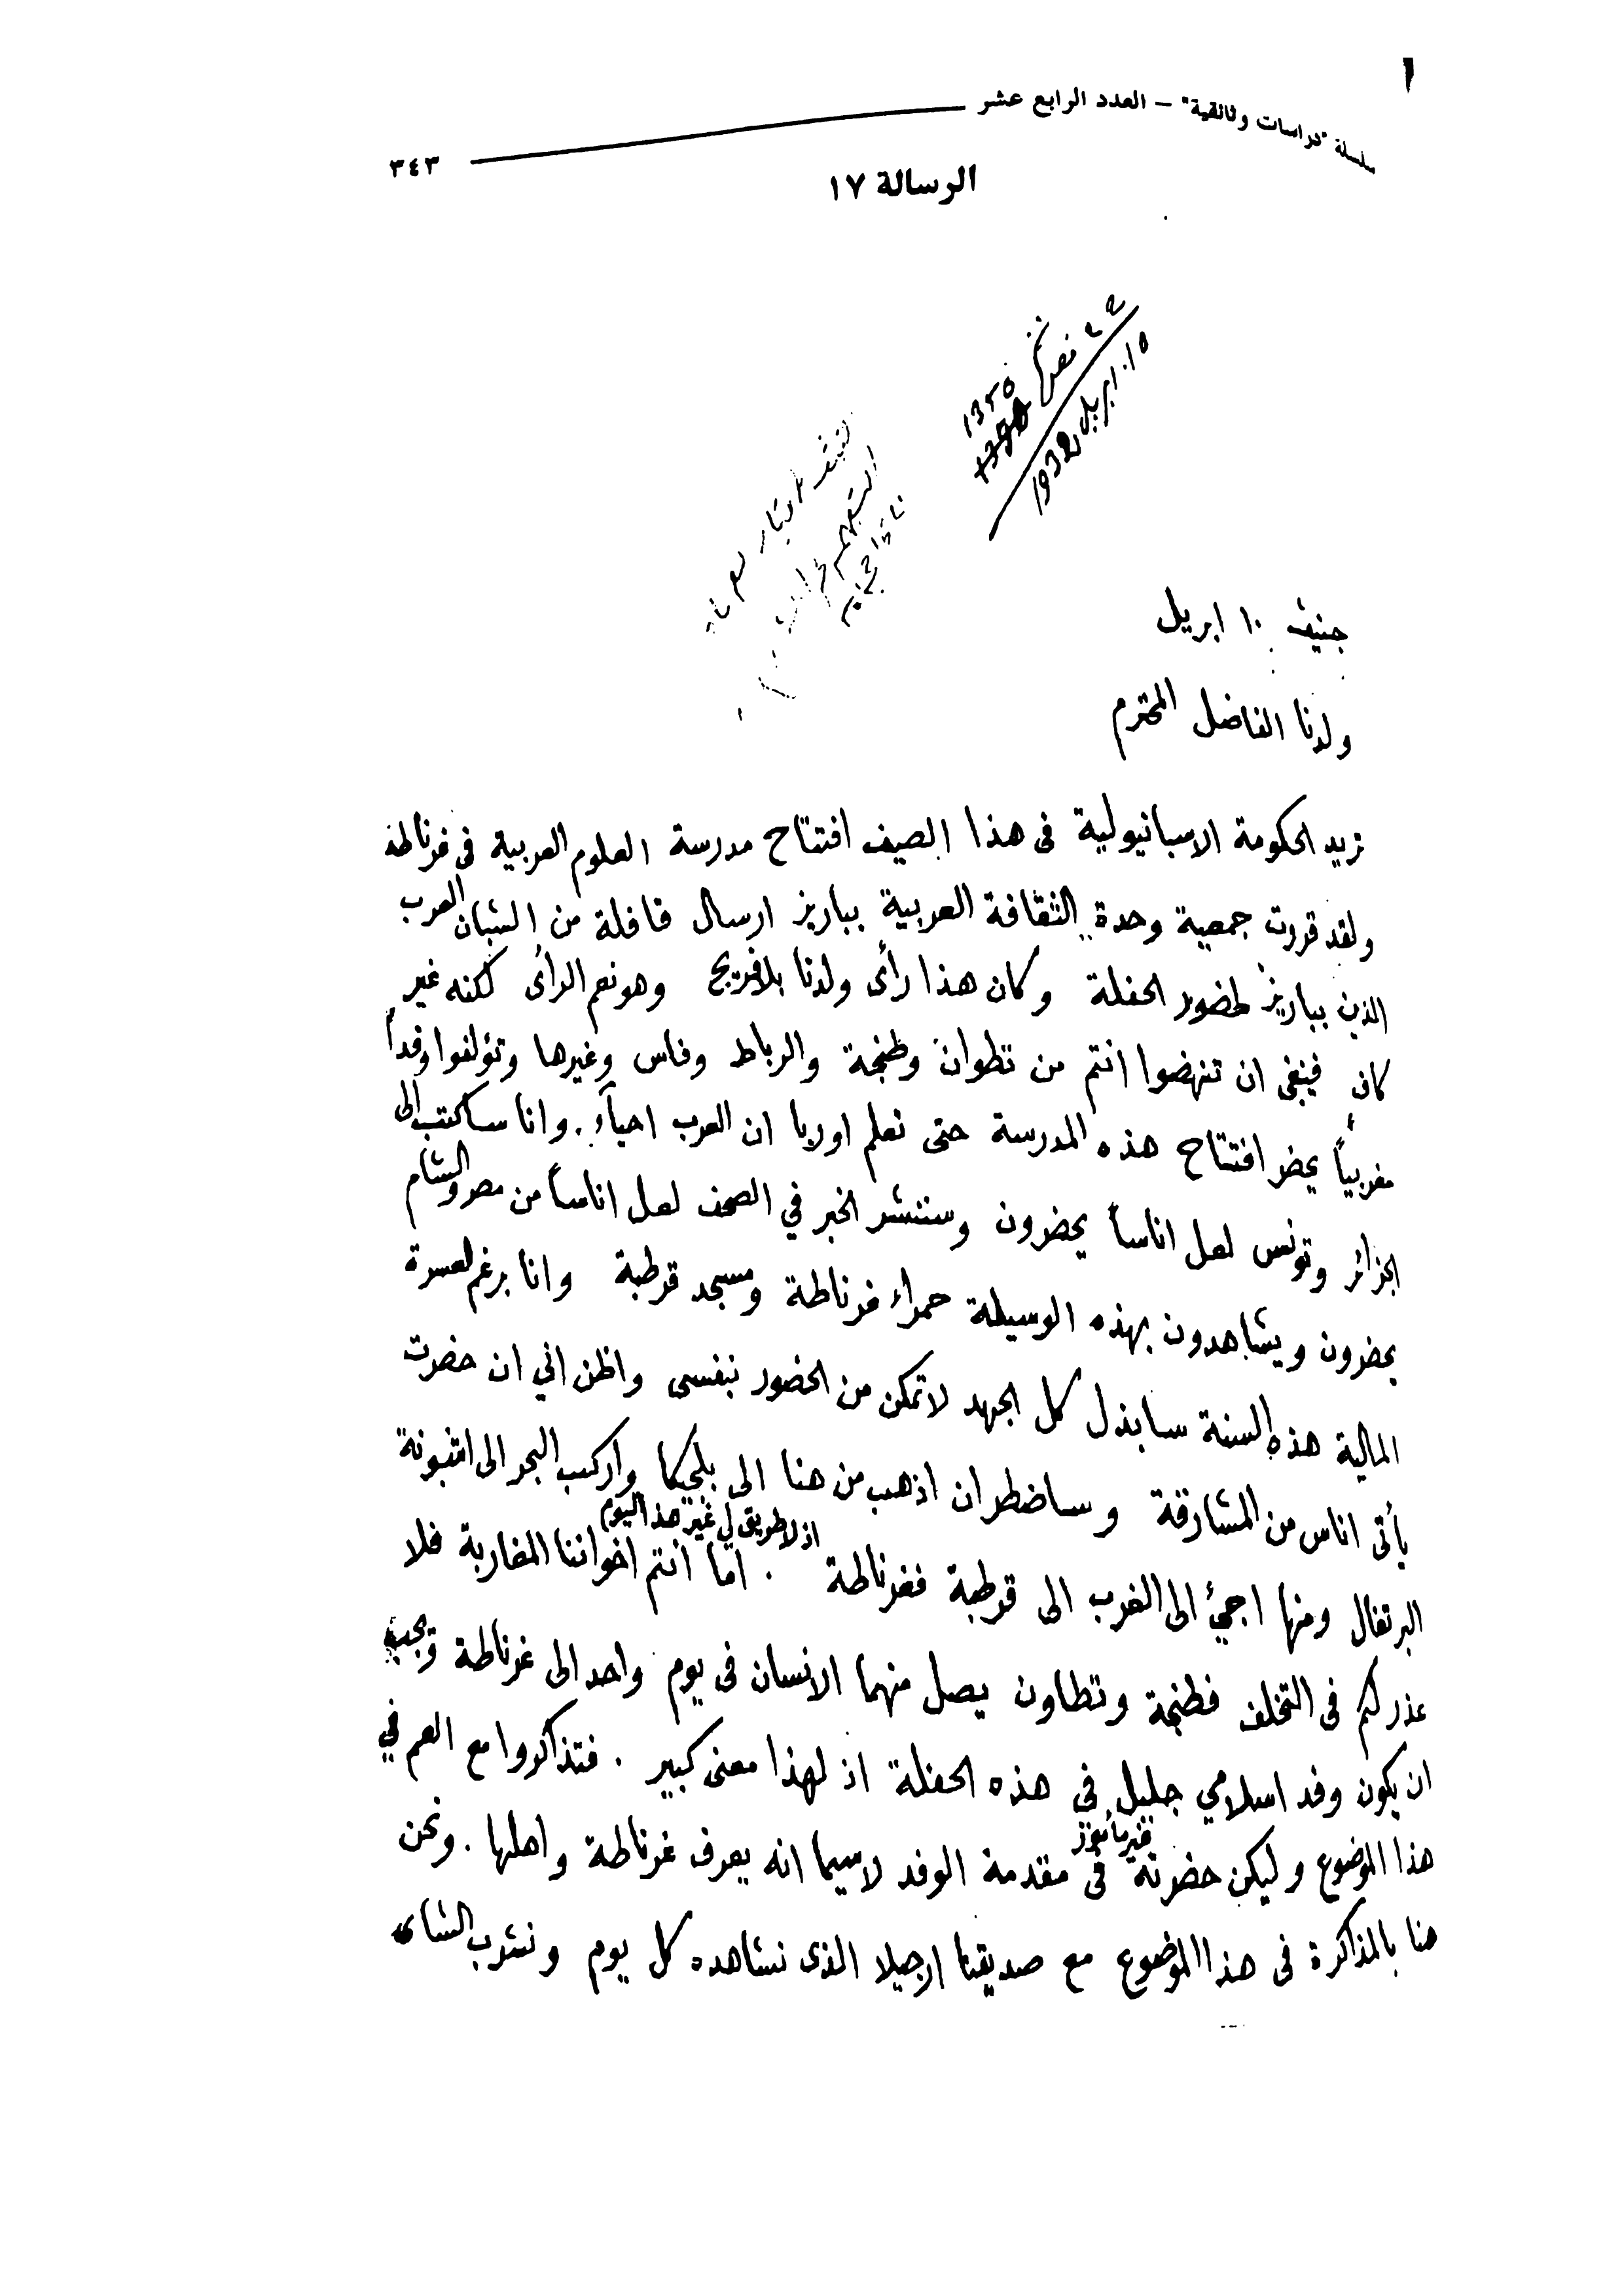 ١
سلسلة "دراسات وثائقية" – العدد الرابع عشر
٣٤٣
الرسالة ١٧
1350
10 ابريل 1932
جنيف ١٠ ابريل
ولدنا الفاضل المحترم
تريد الحكومة الاسبانيولية فى هذا الصيف افتتاح مدرسة العلوم العربية فى غرناطة
ولقد قررت جمعية وحدة الثقافة العربية بباريز ارسال قافلة من الشبان العرب
الذين بباريز لحضور الحفلة وكان هذا رأى ولدنا بلافريج وهو نعم الرأى لكنه غير
كاف فينبغى ان تنهضوا انتم من تطوان وطنجة والرباط وفاس وغيرها وتؤلفوا وفداً
مغربياً يحضر افتتاح هذه المدرسة حتى تعلم اوربا ان العرب احياء. وانا ساكتب الى
الجزائر وتونس لعل اناساً يحضرون وسننشر الخبر في الصحف لعل اناساً من مصر والشام
يحضرون ويشاهدون بهذه الوسيلة حمراء غرناطة ومسجد قرطبة وانا برغم العسرة
المالية هذه السنة سابذل كل الجهد لاتمكن من الحضور بنفسى واظن اني ان حضرت
يأتى اناس من المشارقة وساضطر ان اذهب من هنا الى بلجيكا واركب البحر الى اشبونة
البرتغال ومنها اجيئ الى الغرب الى قرطبة فغرناطة اذ لا طريق لي غير هذا اليوم . اما انتم اخواننا المغاربة فلا
عذر لكم فى التخلف فطنجة وتطاون يصل منهما الانسان فى يوم واحد الى غرناطة ويجب
ان يكون وفد اسلامي جليل فى هذه الحفلة اذ لهذا معنى كبير . فتذاكروا مع العم في
هذا الموضوع وليكن حضرته غير مأمور فى مقدمة الوفد لاسيما انه يعرف غرناطة واهلها . ونحن
هنا بالمذاكرة فى هذا الموضوع مع صديقنا ارجيلا الذى نشاهده كل يوم ونشرب الشاى